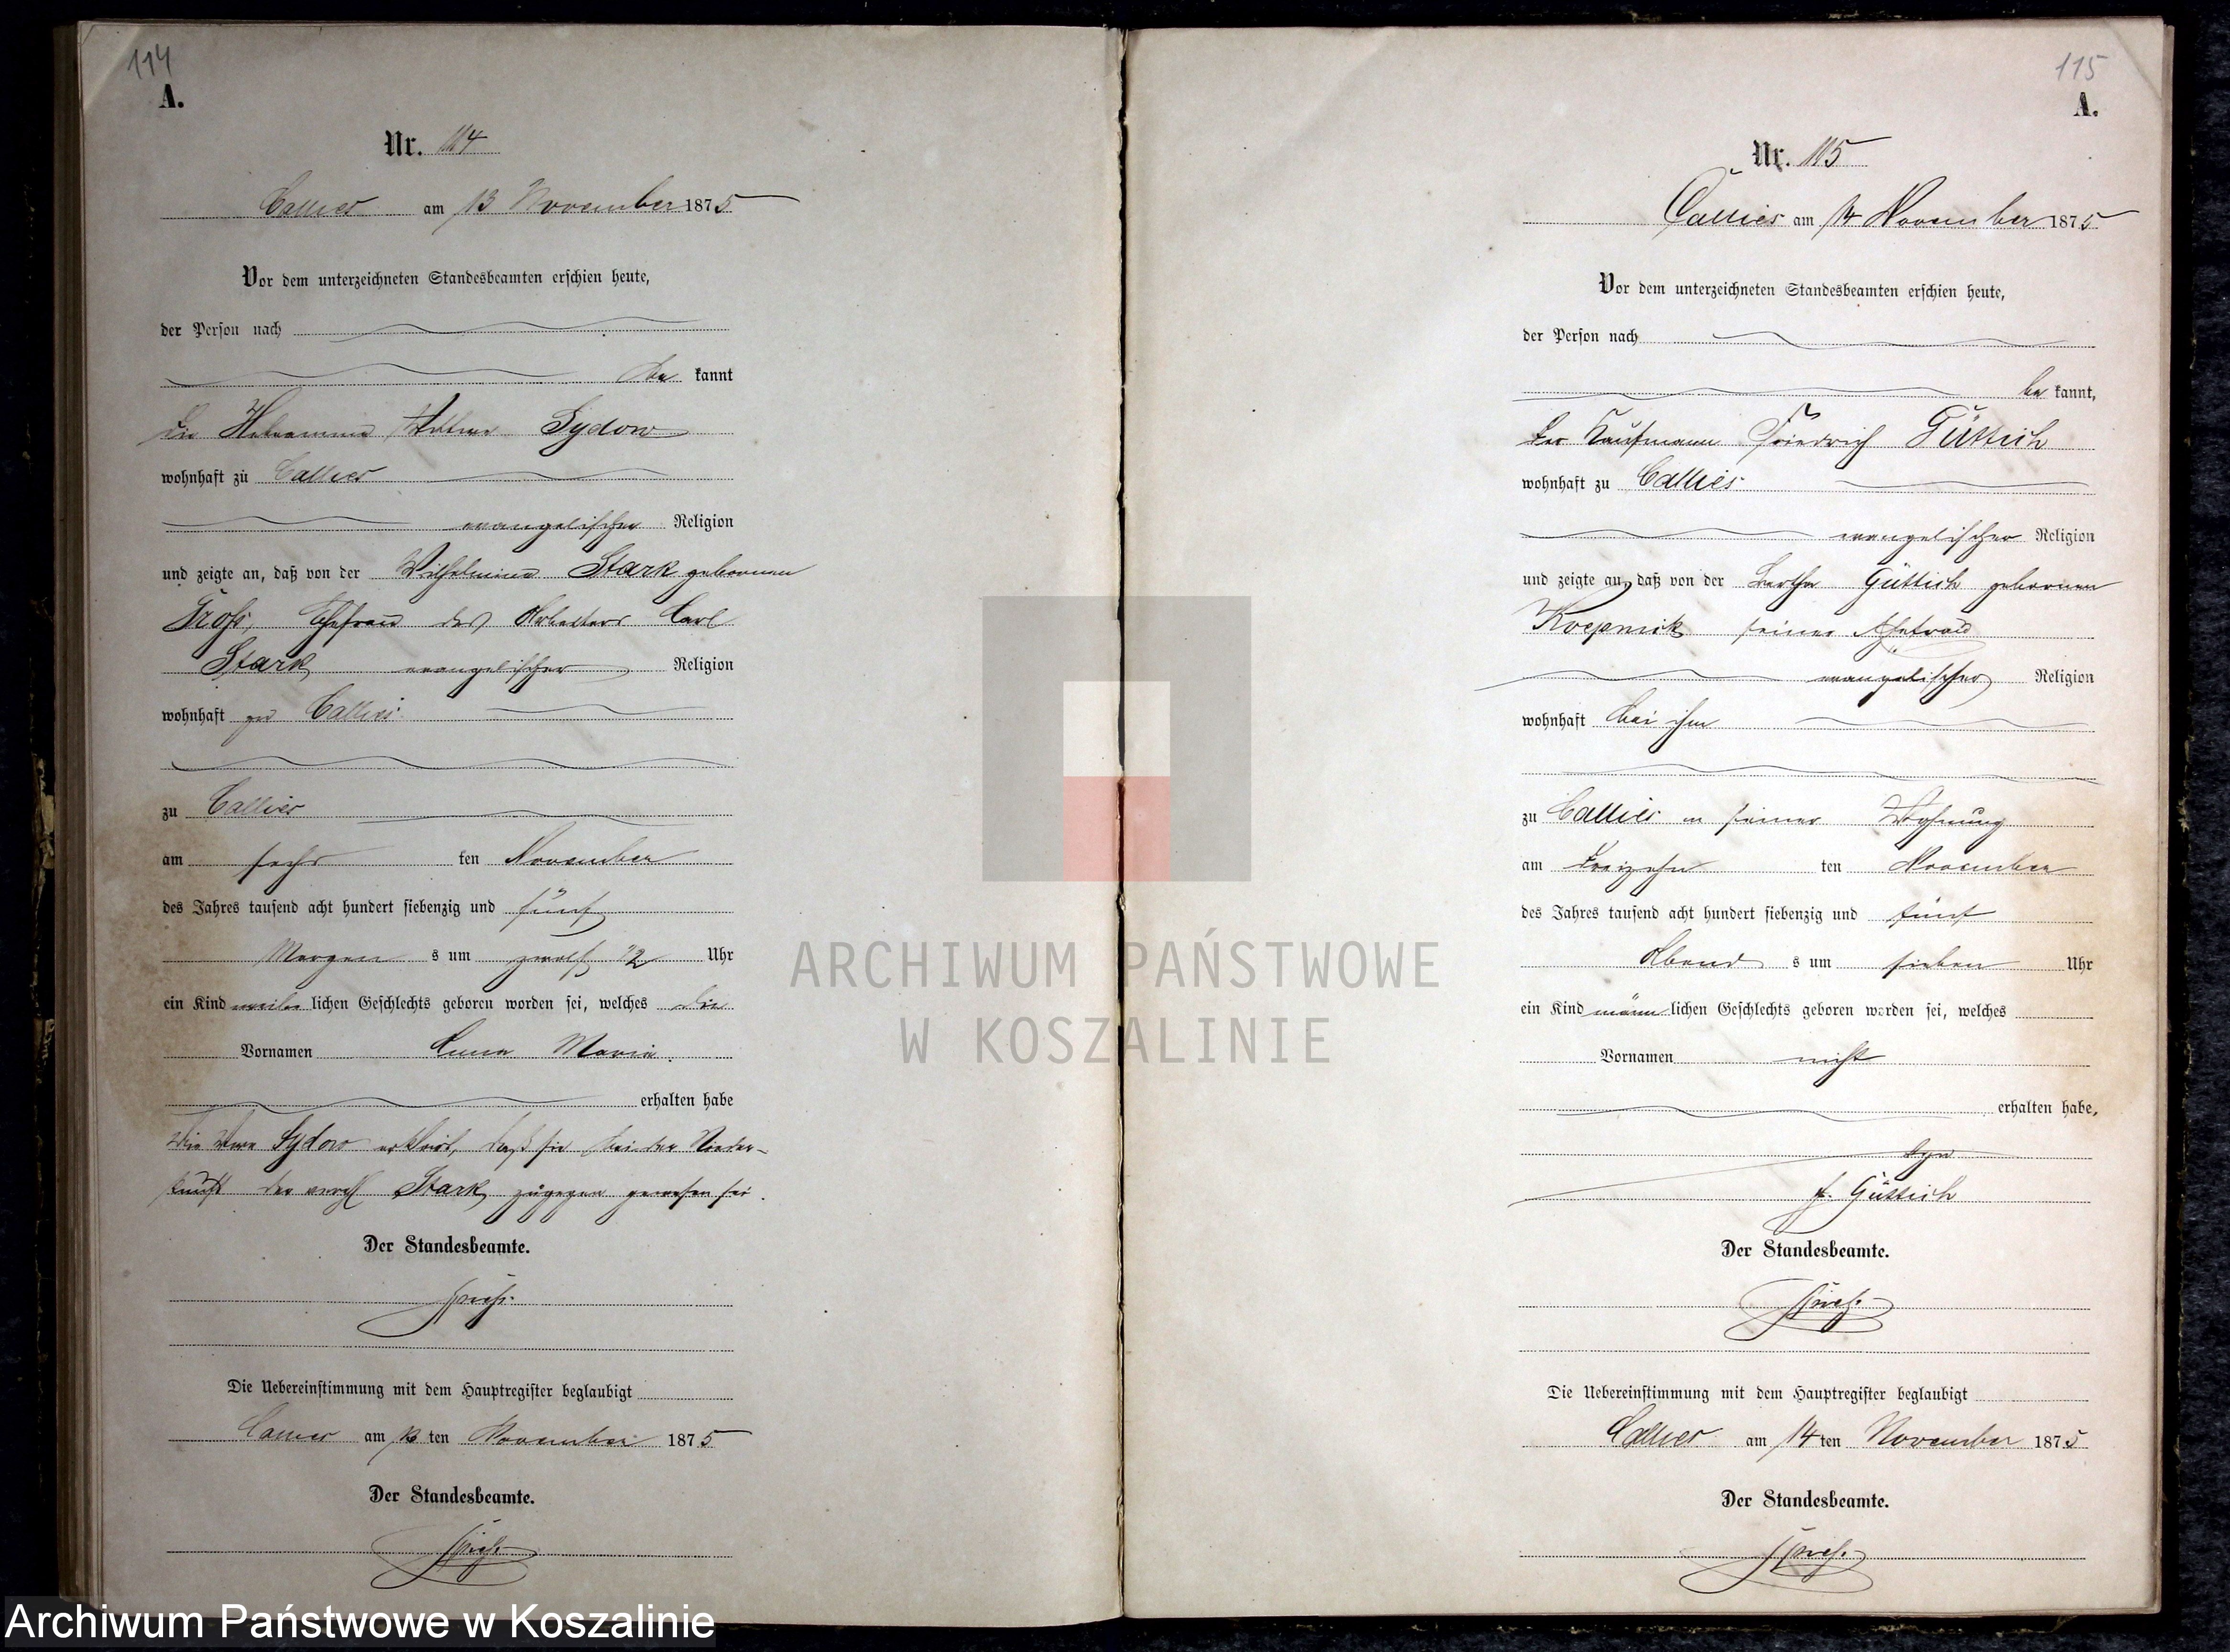 114
A.
Nr. 114
Callies am 13 November 1875
Vor dem unterzeichneten Standesbeamten erschien heute,
der Person nach
be kannt
die Hebamme Wittwe Sydow
wohnhaft zu Callies
evangelischer Religion
und zeigte an, daß von der Wilhelmine Stark gebornen
Ehefrau des Arbeiters Carl
Stark evangelischer Religion
wohnhaft zu Callies
zu Callies
am sechs ten November
des Jahres tausend acht hundert siebenzig und fünf
Morgen s um zwölf 1/2 Uhr
ein Kind weib lichen Geschlechts geboren worden sei, welches die
Vornamen Maria
erhalten habe
Die Sydow erklärt, daß sie bei der Nieder-
kunft der verehl Stark zugegen gewesen sei.
Der Standesbeamte.
Die Uebereinstimmung mit dem Hauptregister beglaubigt
Callies am 13 ten November 1875
Der Standesbeamte.
115
A.
Nr. 115
Callies am 14 November 1875
Vor dem unterzeichneten Standesbeamten erschien heute,
der Person nach
be kannt,
der Kaufmann Friedrich Güttich
wohnhaft zu Callies
evangelischer Religion
und zeigte an, daß von der Bertha Güttich gebornen
Koepnick seiner Ehefrau
evangelischer Religion
wohnhaft bei ihm
zu Callies in seiner Wohnung
am dreizehn ten November
des Jahres tausend acht hundert siebenzig und fünf
Abend s um sieben Uhr
ein Kind männ lichen Geschlechts geboren worden sei, welches
Vornamen nicht
erhalten habe,
F. Güttich
Der Standesbeamte.
Die Uebereinstimmung mit dem Hauptregister beglaubigt
Callies am 14 ten November 1875
Der Standesbeamte.
ARCHIWUM PAŃSTWOWE
W KOSZALINIE
Archiwum Państwowe w Koszalinie